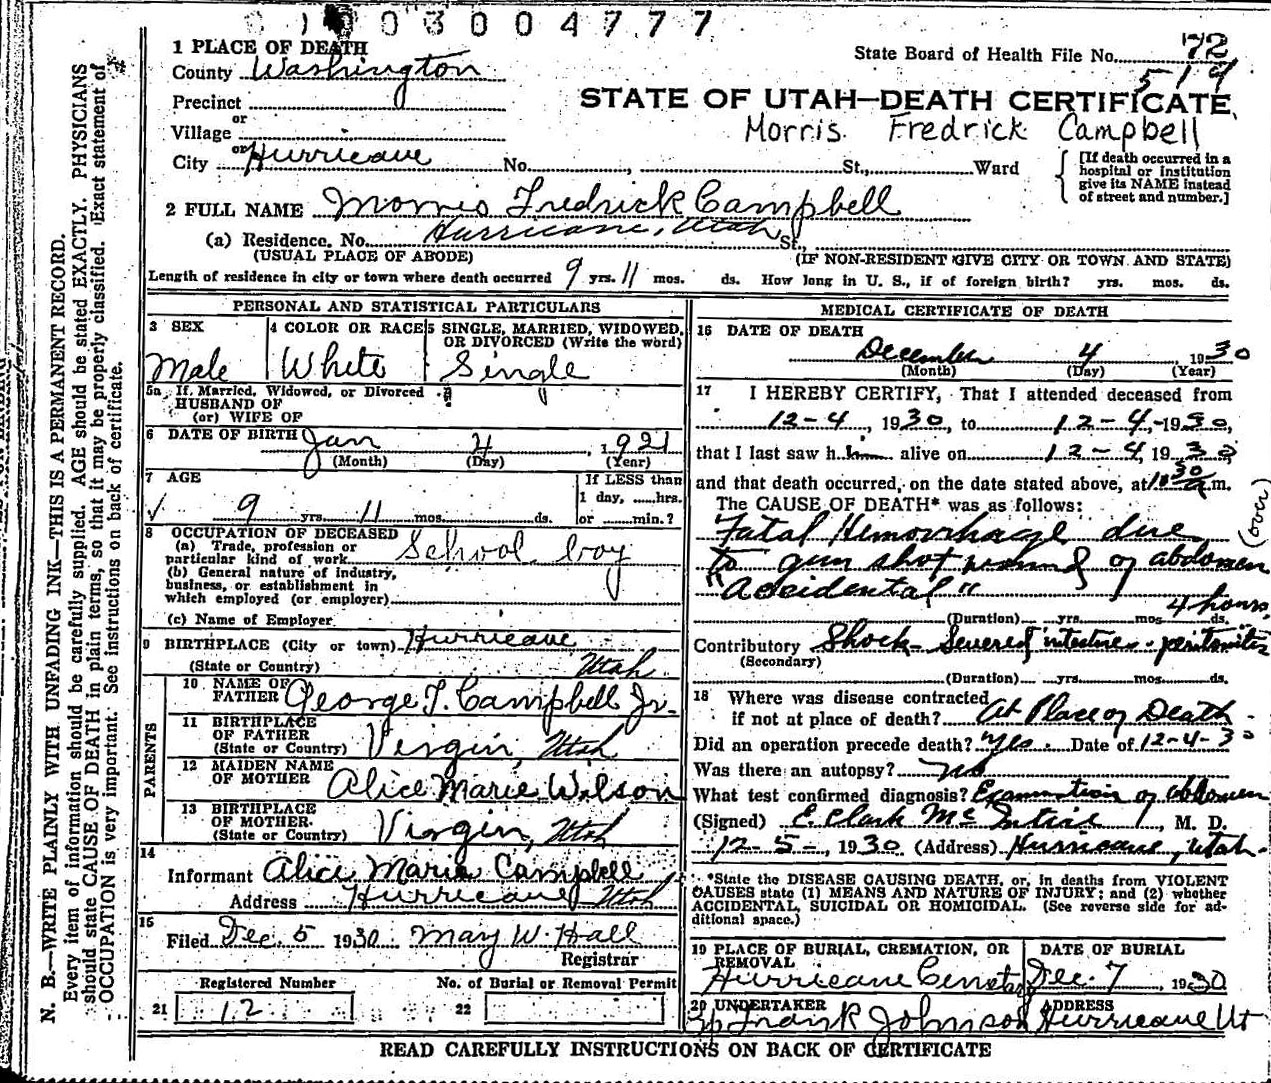 003004777
1 PLACE OF DEATH
State Board of Health File No. 72
County Washington
519
Precinct
STATE OF UTAH—DEATH CERTIFICATE
or
Village
Morris Fredrick Campbell
City or Hurricane No. , St., Ward
[If death occurred in a hospital or institution give its NAME instead of street and number.]
2 FULL NAME Morris Fredrick Campbell
(a) Residence. No. Hurricane, Utah St.,
(USUAL PLACE OF ABODE) (IF NON-RESIDENT GIVE CITY OR TOWN AND STATE)
Length of residence in city or town where death occurred 9 yrs. 11 mos. ds. How long in U. S., if of foreign birth? yrs. mos. ds.
PERSONAL AND STATISTICAL PARTICULARS
3 SEX
Male
4 COLOR OR RACE
White
5 SINGLE, MARRIED, WIDOWED,
OR DIVORCED (Write the word)
Single
5a If. Married, Widowed, or Divorced
HUSBAND OF
(or) WIFE OF
6 DATE OF BIRTH Jan 4, 1921
(Month) (Day) (Year)
7 AGE
9 yrs. 11 mos. ds.
If LESS than
1 day, ......hrs.
or ......min.?
8 OCCUPATION OF DECEASED
(a) Trade, profession or
particular kind of work School boy
(b) General nature of industry,
business, or establishment in
which employed (or employer)
(c) Name of Employer
9 BIRTHPLACE (City or town) Hurricane
(State or Country) Utah
PARENTS
10 NAME OF
FATHER George T. Campbell Jr.
11 BIRTHPLACE
OF FATHER
(State or Country) Virgin, Utah
12 MAIDEN NAME
OF MOTHER Alice Marie Wilson
13 BIRTHPLACE
OF MOTHER
(State or Country) Virgin, Utah
14
Informant Alice Marie Campbell
Address Hurricane Utah
15
Filed Dec 5 1930 May W. Hall
Registrar
Registered Number No. of Burial or Removal Permit
21 12 22
MEDICAL CERTIFICATE OF DEATH
16 DATE OF DEATH
December 4, 1930
(Month) (Day) (Year)
17 I HEREBY CERTIFY, That I attended deceased from
12-4, 1930, to 12-4, 1930,
that I last saw him alive on 12-4, 1930
and that death occurred, on the date stated above, at 1030 a.m.
The CAUSE OF DEATH* was as follows:
Fatal Hemorrhage due
(over)
to gun shot wound of abdomen
"Accidental"
4 hours
(Duration) yrs. mos. ds.
Contributory Shock - Severed intestine - peritonitis
(Secondary)
(Duration) yrs. mos. ds.
18 Where was disease contracted
if not at place of death? At Place of Death
Did an operation precede death? Yes. Date of 12-4-30
Was there an autopsy? No
What test confirmed diagnosis? Examination of abdomen
(Signed) E. Clark McIntire, M. D.
12-5-, 1930 (Address) Hurricane, Utah.
*State the DISEASE CAUSING DEATH, or, in deaths from VIOLENT
CAUSES state (1) MEANS AND NATURE OF INJURY; and (2) whether
ACCIDENTAL, SUICIDAL OR HOMICIDAL. (See reverse side for additional space.)
19 PLACE OF BURIAL, CREMATION, OR
REMOVAL
Hurricane Cemetary
DATE OF BURIAL
Dec. 7 1930
20 UNDERTAKER
Frank Johnson
ADDRESS
Hurricane Ut
READ CAREFULLY INSTRUCTIONS ON BACK OF CERTIFICATE
N. B.—WRITE PLAINLY WITH UNFADING INK—THIS IS A PERMANENT RECORD.
Every item of information should be carefully supplied. AGE should be stated EXACTLY. PHYSICIANS
should state CAUSE OF DEATH in plain terms, so that it may be properly classified. Exact statement of
OCCUPATION is very important. See instructions on back of certificate.